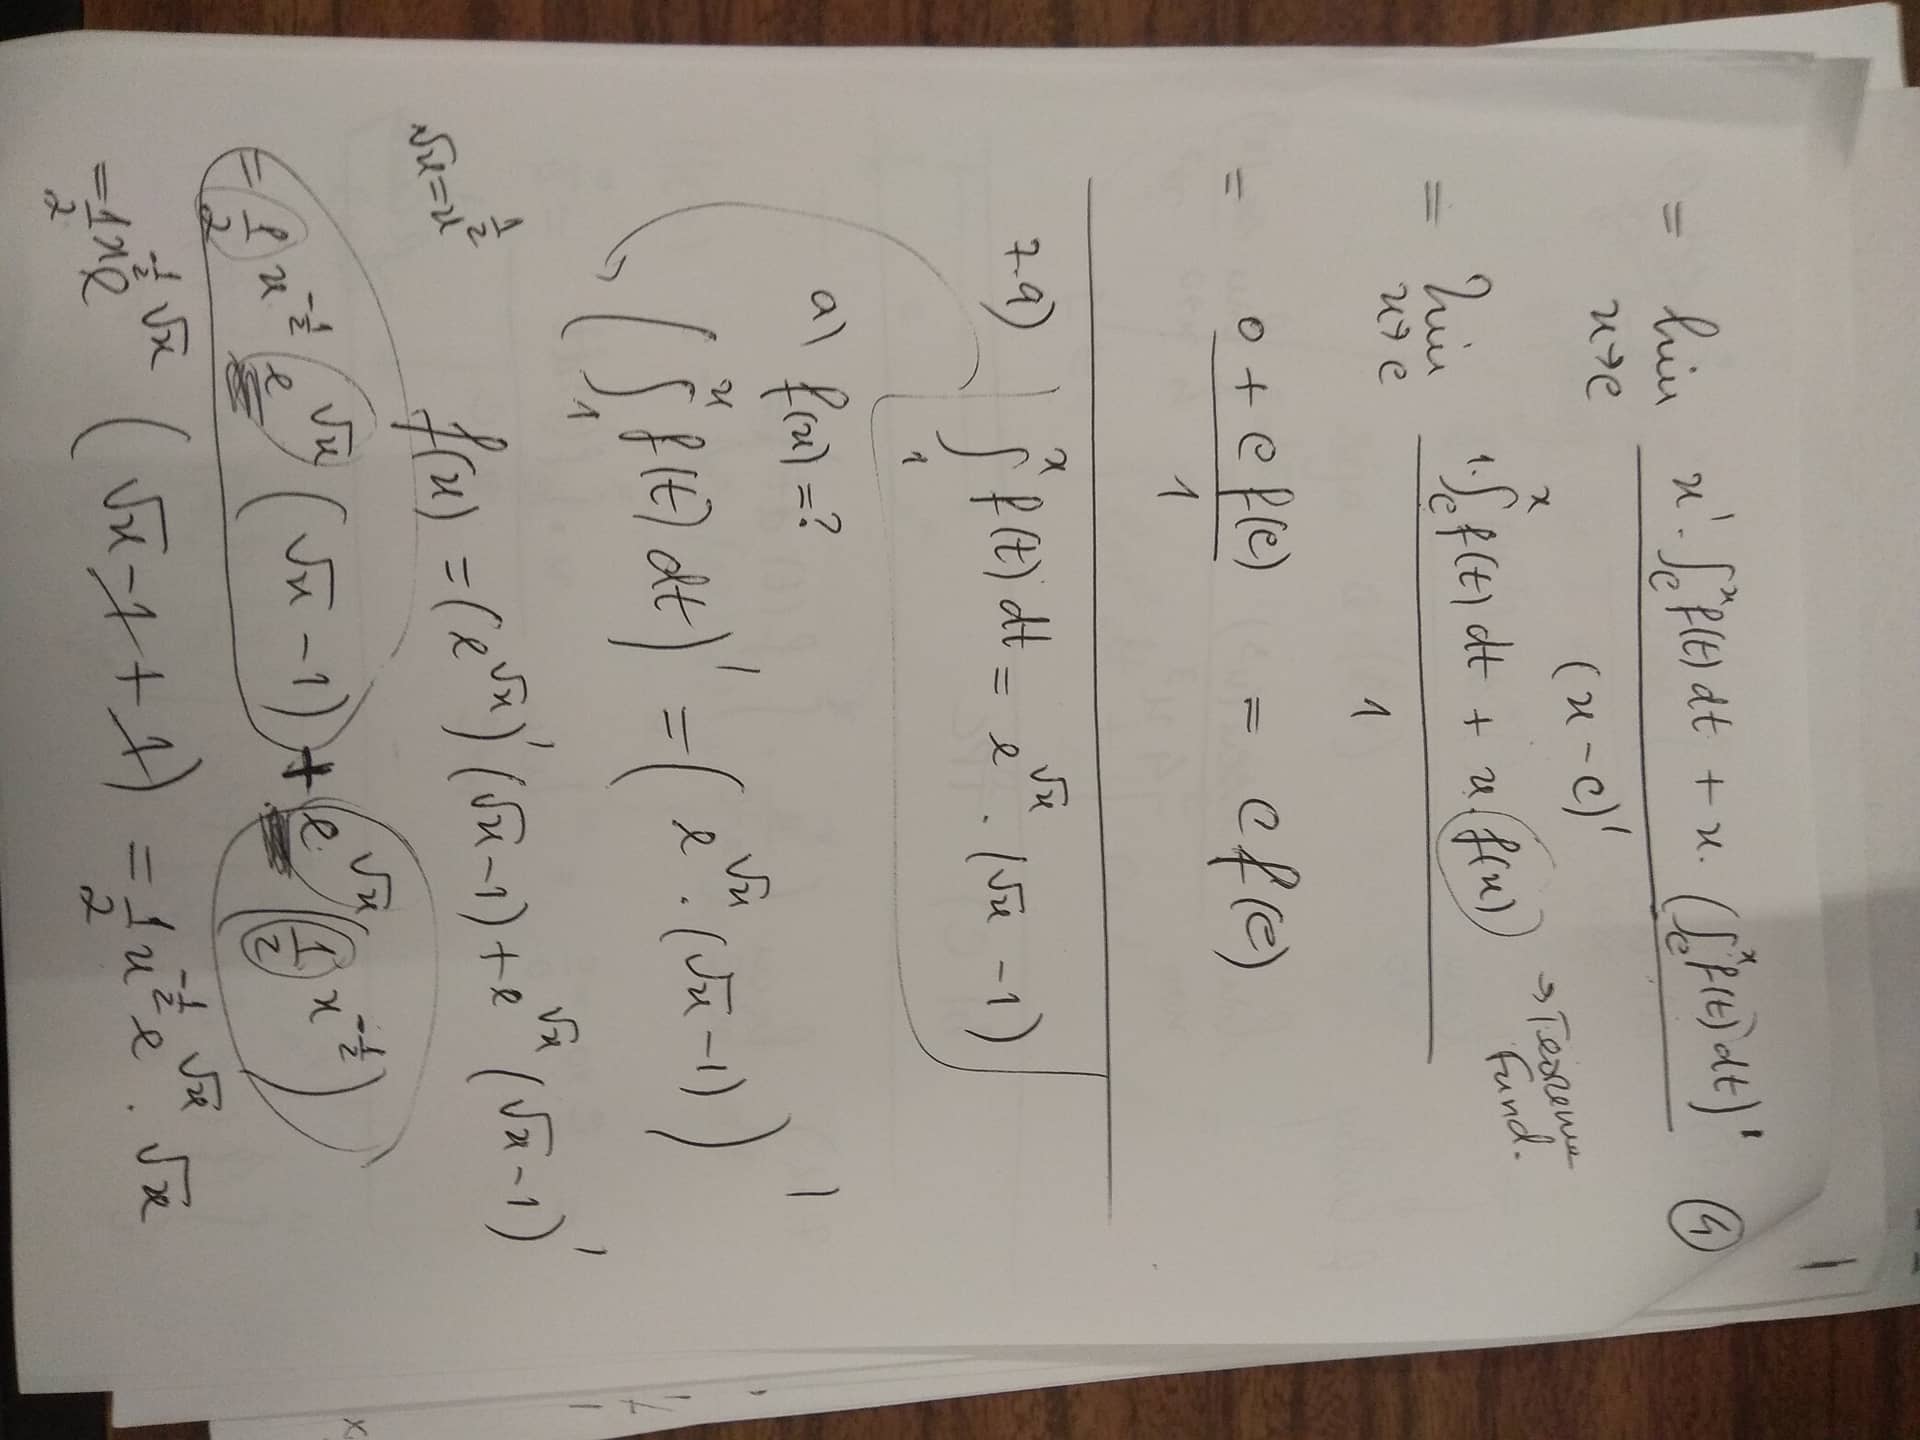 = lim_{x→c} (x'·∫_c^x f(t) dt + x·(∫_c^x f(t) dt)') / (x-c)' ④
= lim_{x→c} (1·∫_c^x f(t) dt + x·f(x)) / 1 → Teorema Fund.
= (0 + c f(c)) / 1 = c f(c)
7.9) ∫_1^x f(t) dt = e^{√x} · (√x - 1)
a) f(x) = ?
(∫_1^x f(t) dt)' = (e^{√x} · (√x - 1))'
√x = x^{1/2}
f(x) = (e^{√x})' (√x - 1) + e^{√x} (√x - 1)'
= 1/2 x^{-1/2} e^{√x} (√x - 1) + e^{√x} (1/2 x^{-1/2})
= 1/2 x^{-1/2} e^{√x} (√x - 1 + 1) = 1/2 x^{-1/2} e^{√x} · √x